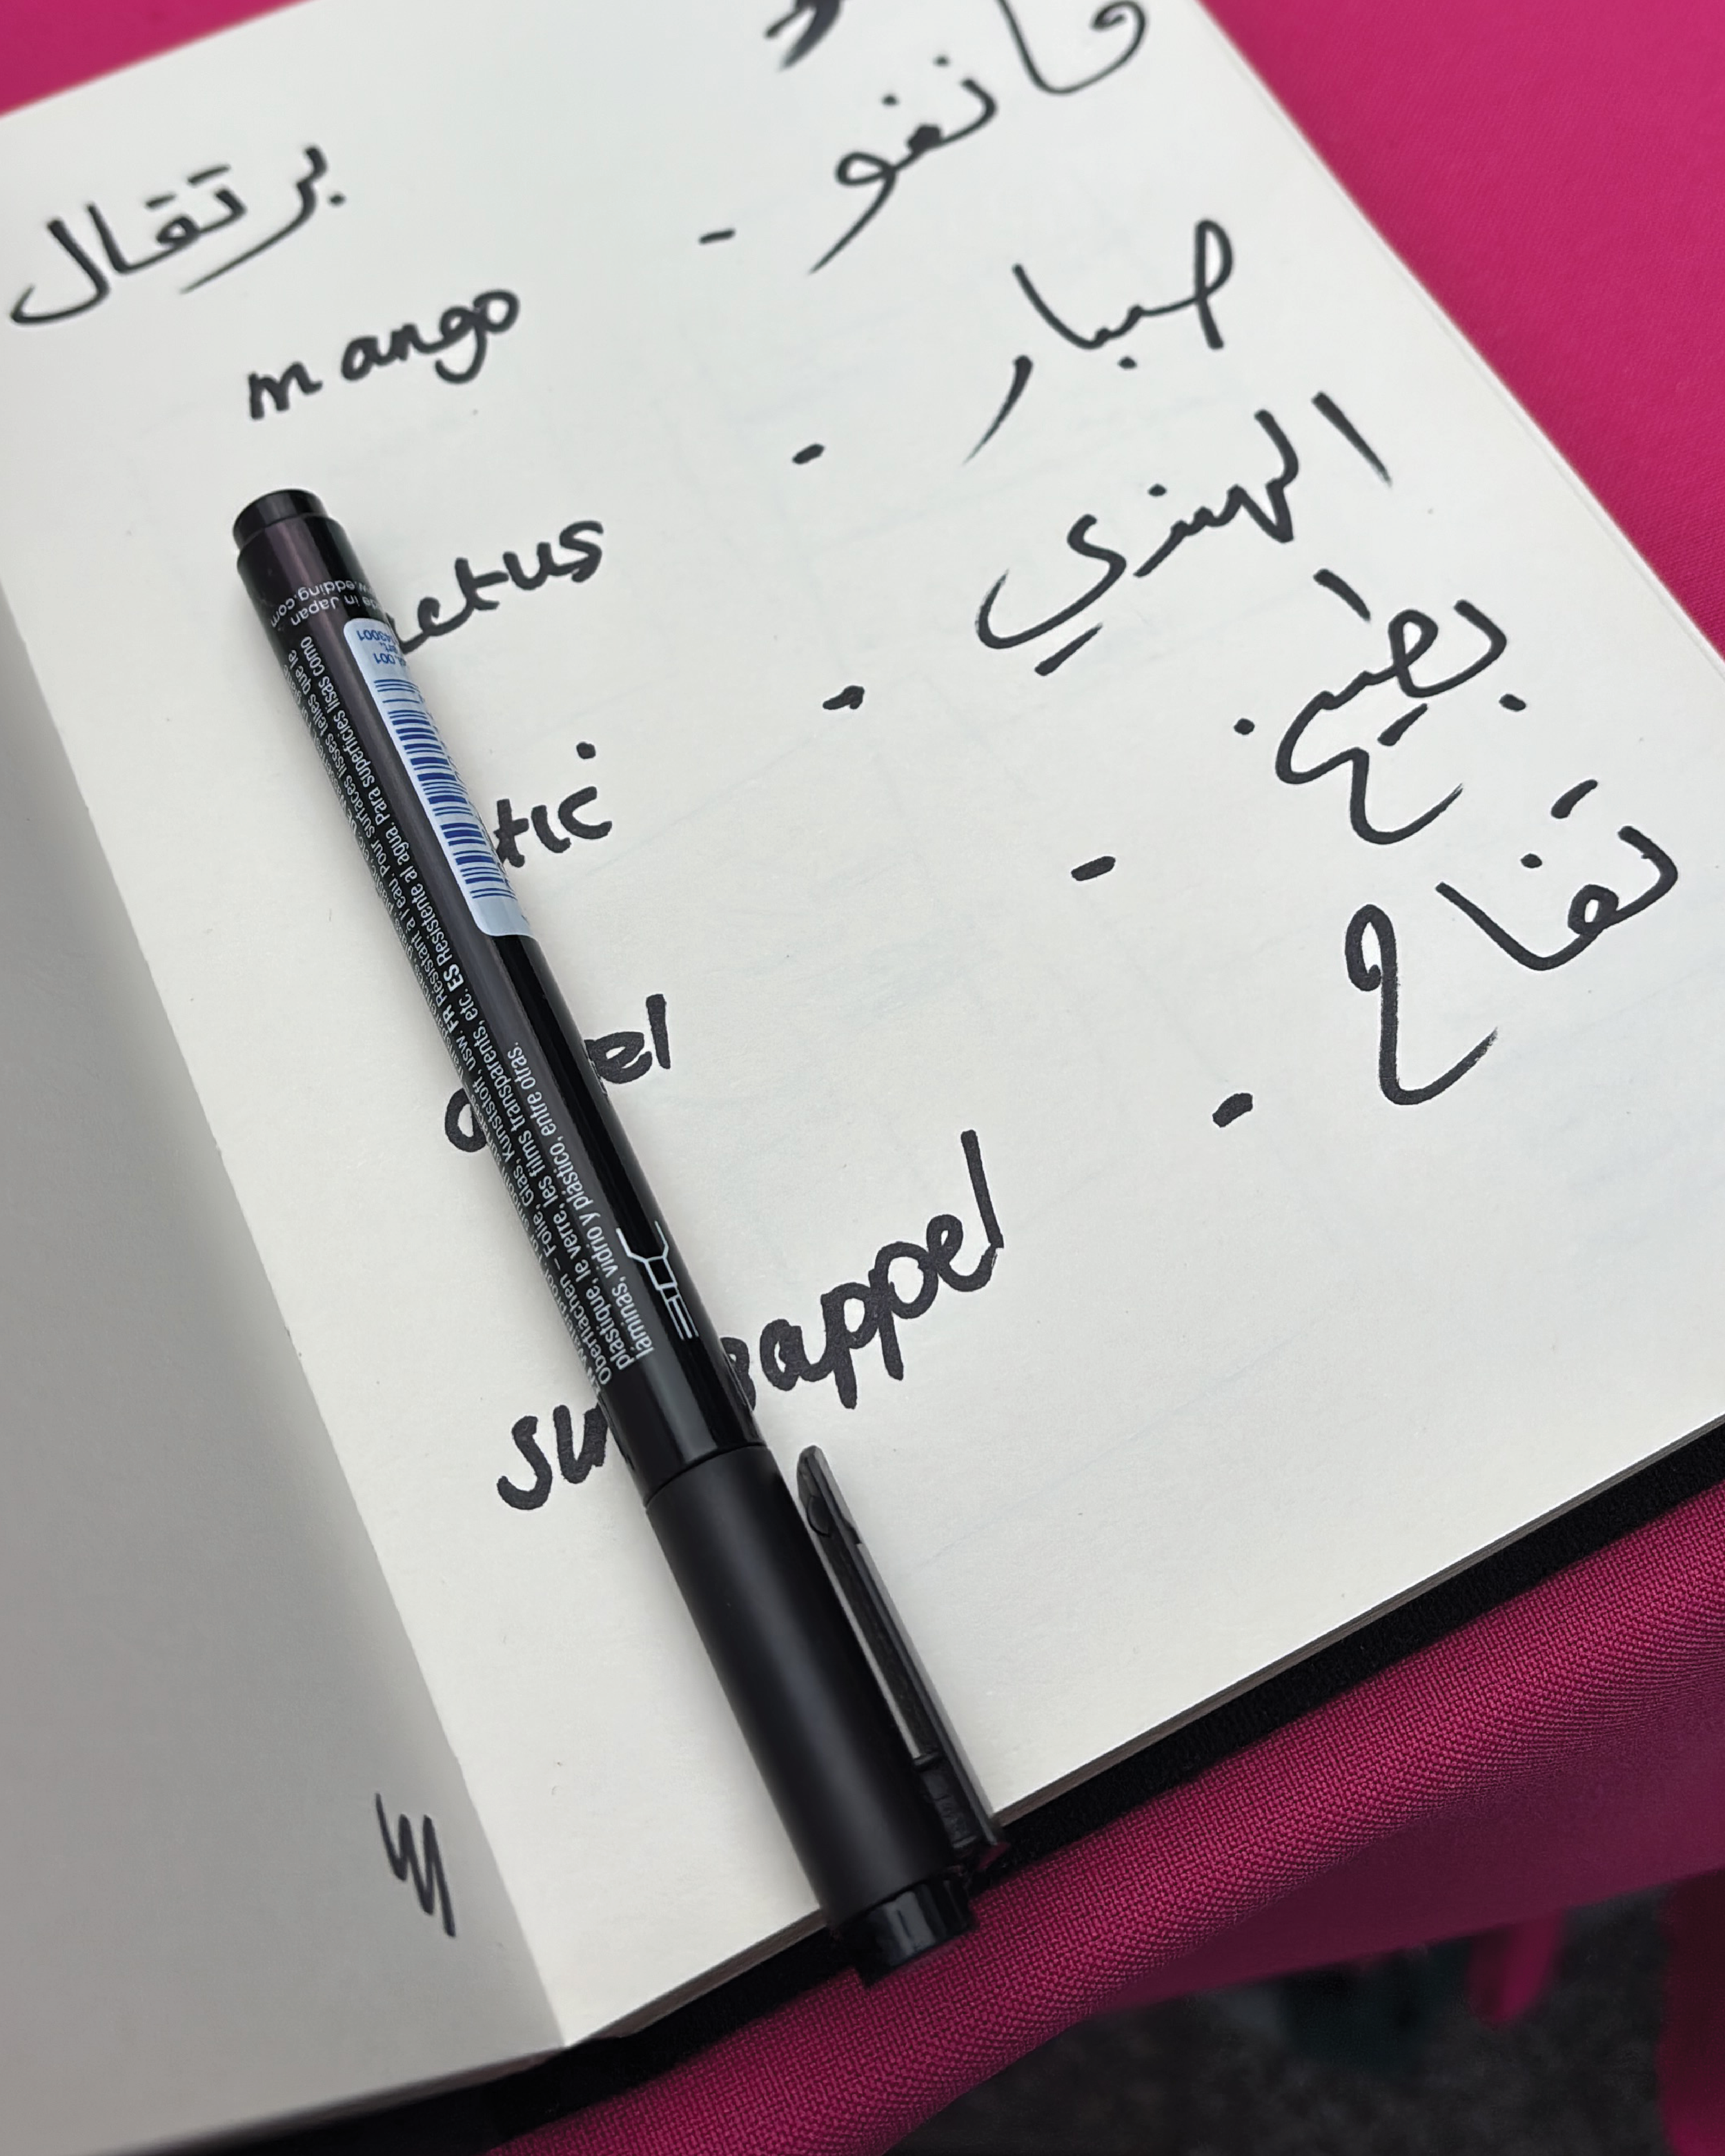 برتقال
مانغو -
mango
صبار -
ctus
الهندي -
tic
بطيخ -
el
تفاح -
appel
edding.com
in Japan
Folie, Glas, Kunststoff, usw. FR Résistant à l'eau. Pour surfaces lisses telles que le
plastique, le verre, les films transparents, etc. ES Resistente al agua. Para superficies lisas como
láminas, vidrio y plástico, entre otras.